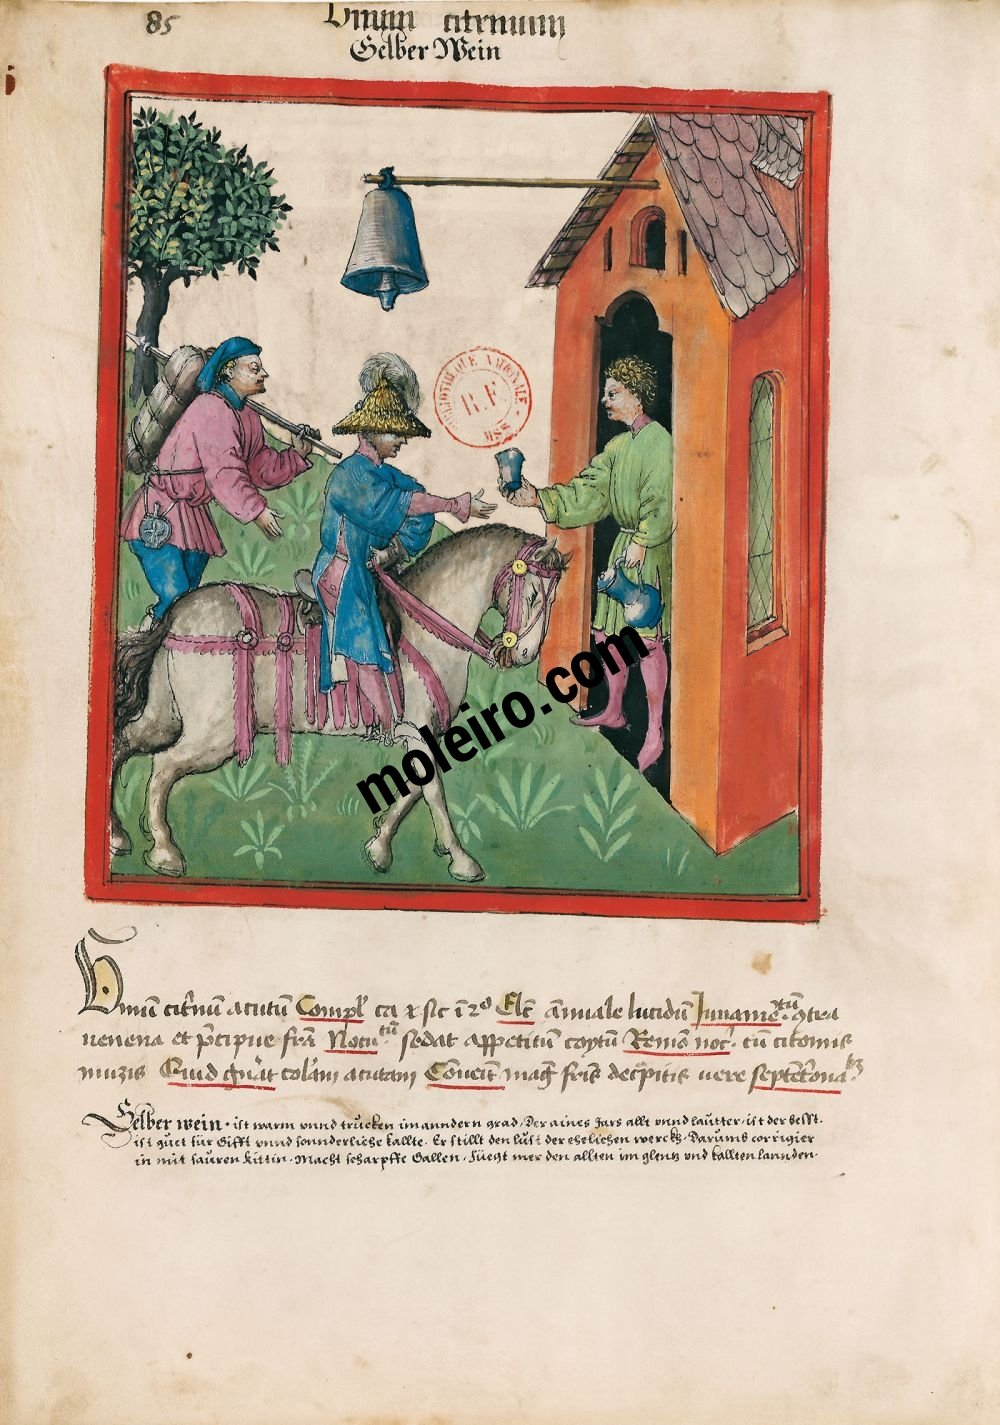 85
Vinum citrinum
Gelber Wein
BIBLIOTHEQUE NATIONALE
R.F.
MSS
moleiro.com
Vinū citrīnū acutū Compl̄ ca ⁊ sic ī 2º Elc̄ ānuale lucidū Juuamē tū ꝯtra
uenena et p̄cipue frīa Nocu tū sedat appetitū coytū Remō noc̄. cū citonijs
muzis Quid gn̄at colām acutam Cōuenit maḡ fris decp̄itis uere septētrōna
Gelber wein · ist warm vnnd trucken im anndern grad / Der aines Jars allt vnnd lautter / ist der besst.
ist guet für Gifft vnnd sonnderliche kallte. Er stillt den lust der eelichen werckh. Darumb corrigier
in mit sauren kittin. Macht scharpffe Gallen. Füegt mer den allten im glentz vnd kallten lannden.